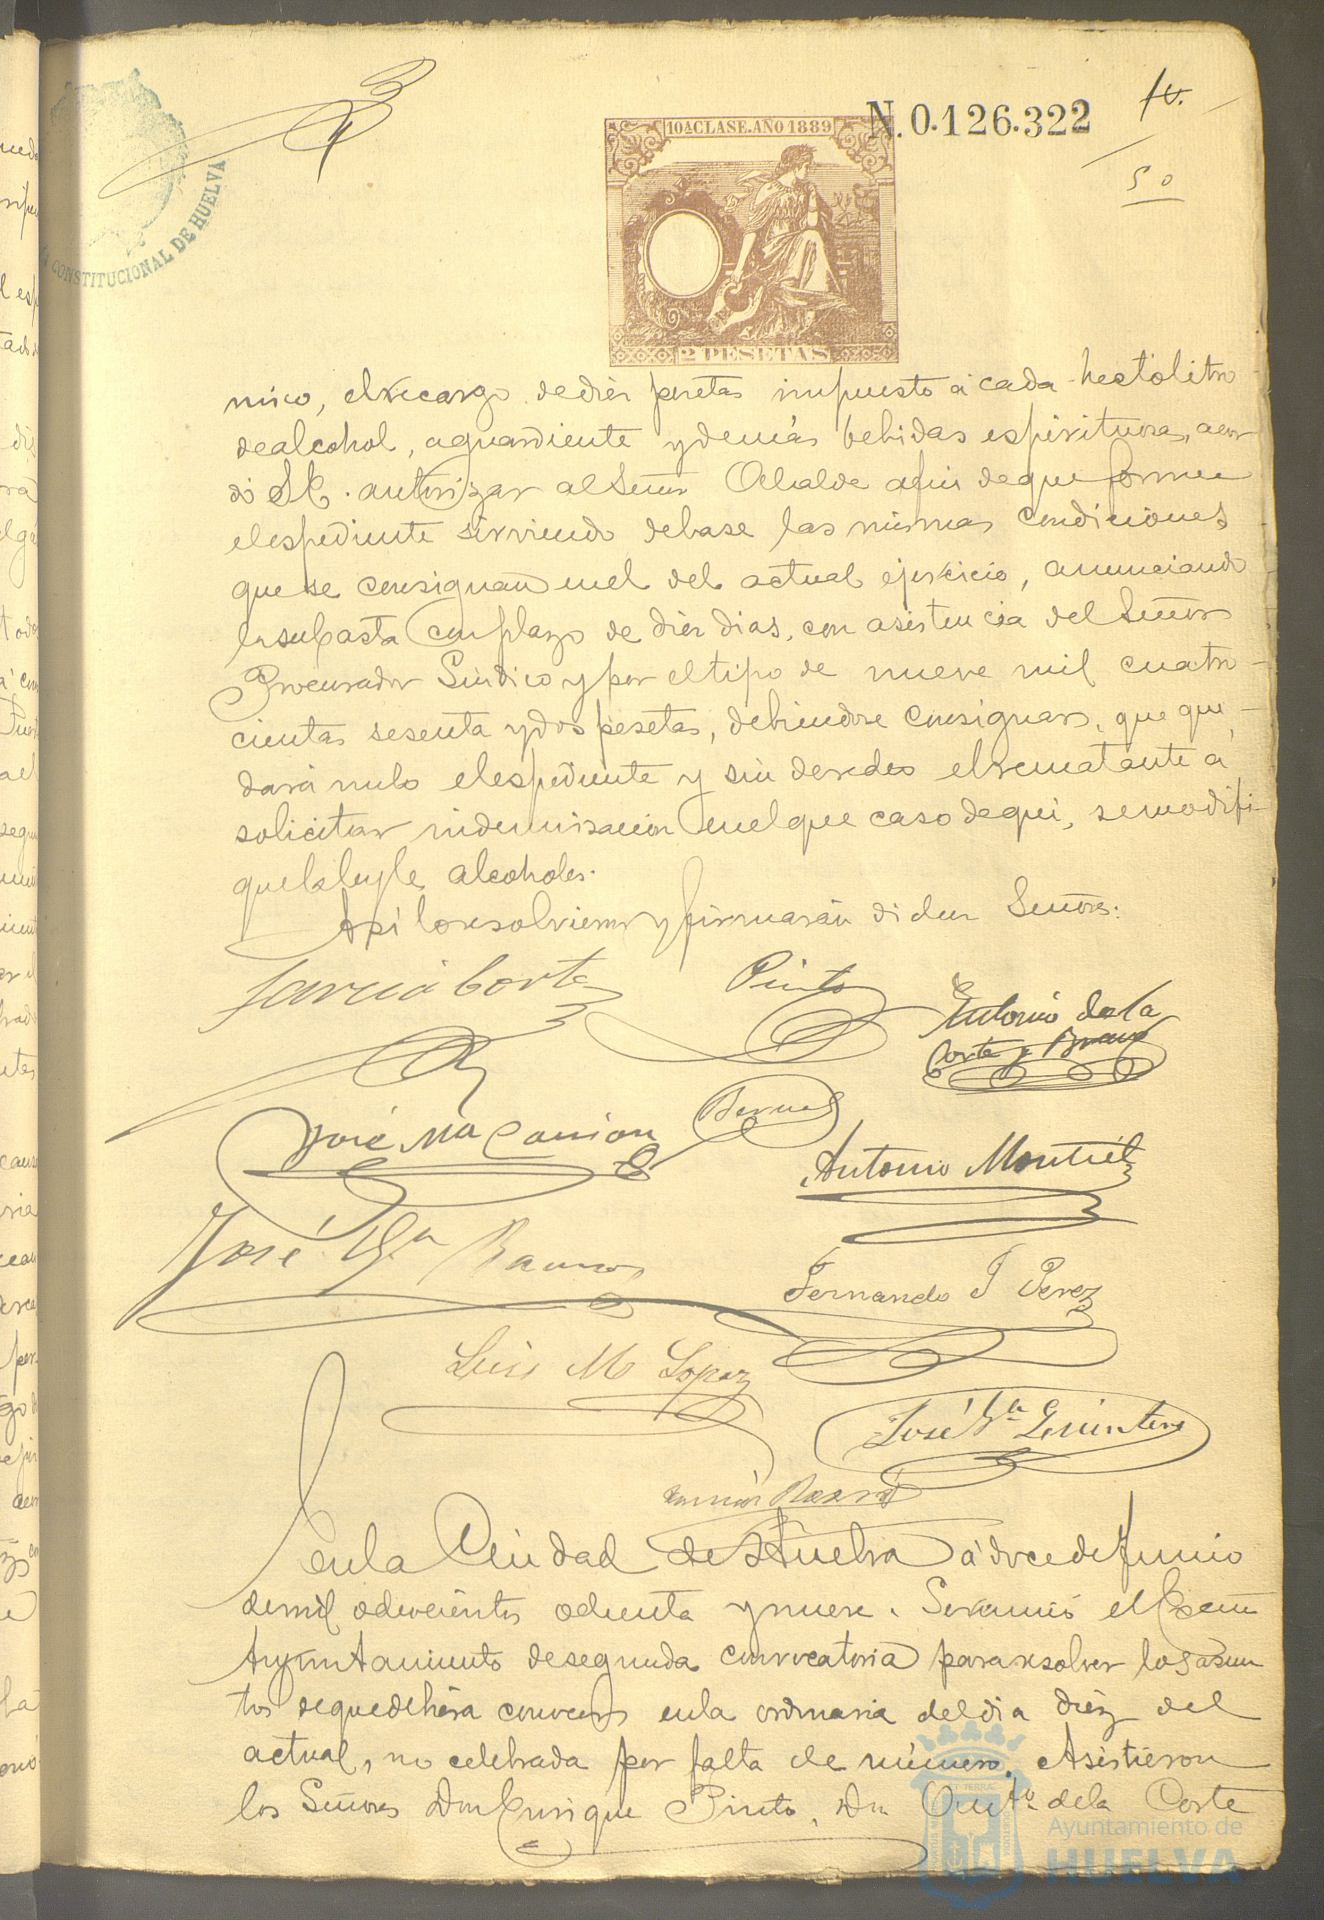 10ª CLASE. AÑO 1889
N. 0.126.322
50
CONSTITUCIONAL DE HUELVA
2 PESETAS
mico, el recargo de diez pesetas impuesto á cada hectólitro
de alcohol, aguardiente y demás bebidas espirituosas, acor
dó S.E. autorizar al Señor Alcalde afin de que forme
el espediente sirviendo de base las mismas condiciones
que se consignan en el del actual ejercicio, anunciando
la subasta con plazo de diez dias, con asistencia del Señor
Procurador Síndico y por el tipo de nueve mil cuatro-
cientas sesenta y dos pesetas, debiendose consignar, que que-
dará nulo el espediente y sin derecho el rematante a
solicitar indemnisacion en el que caso de qué, se modifi-
que la ley de alcoholes.
Asi lo resolvieron y firmarán dichos Señores:
Garcia Corte
Pinto
Antonio de la
Corte y Bravo
José Mª Carrion
Bernal
Antonio Montiel
José Mª Ramos
Fernando J Perez
Luis M Lopez
José Mª Quintero
En la Ciudad de Huelva á doce de Junio
de mil ochocientos ochenta y nueve. Se reunió el Excmo
Ayuntamiento de segunda convocatoria para resolver los asun
tos de que debiera conocerse en la ordinaria del dia diez del
actual, no celebrada por falta de número. Asistieron
los Señores Don Enrique Pinto, Dn Antº de la Corte
Ayuntamiento de
HUELVA